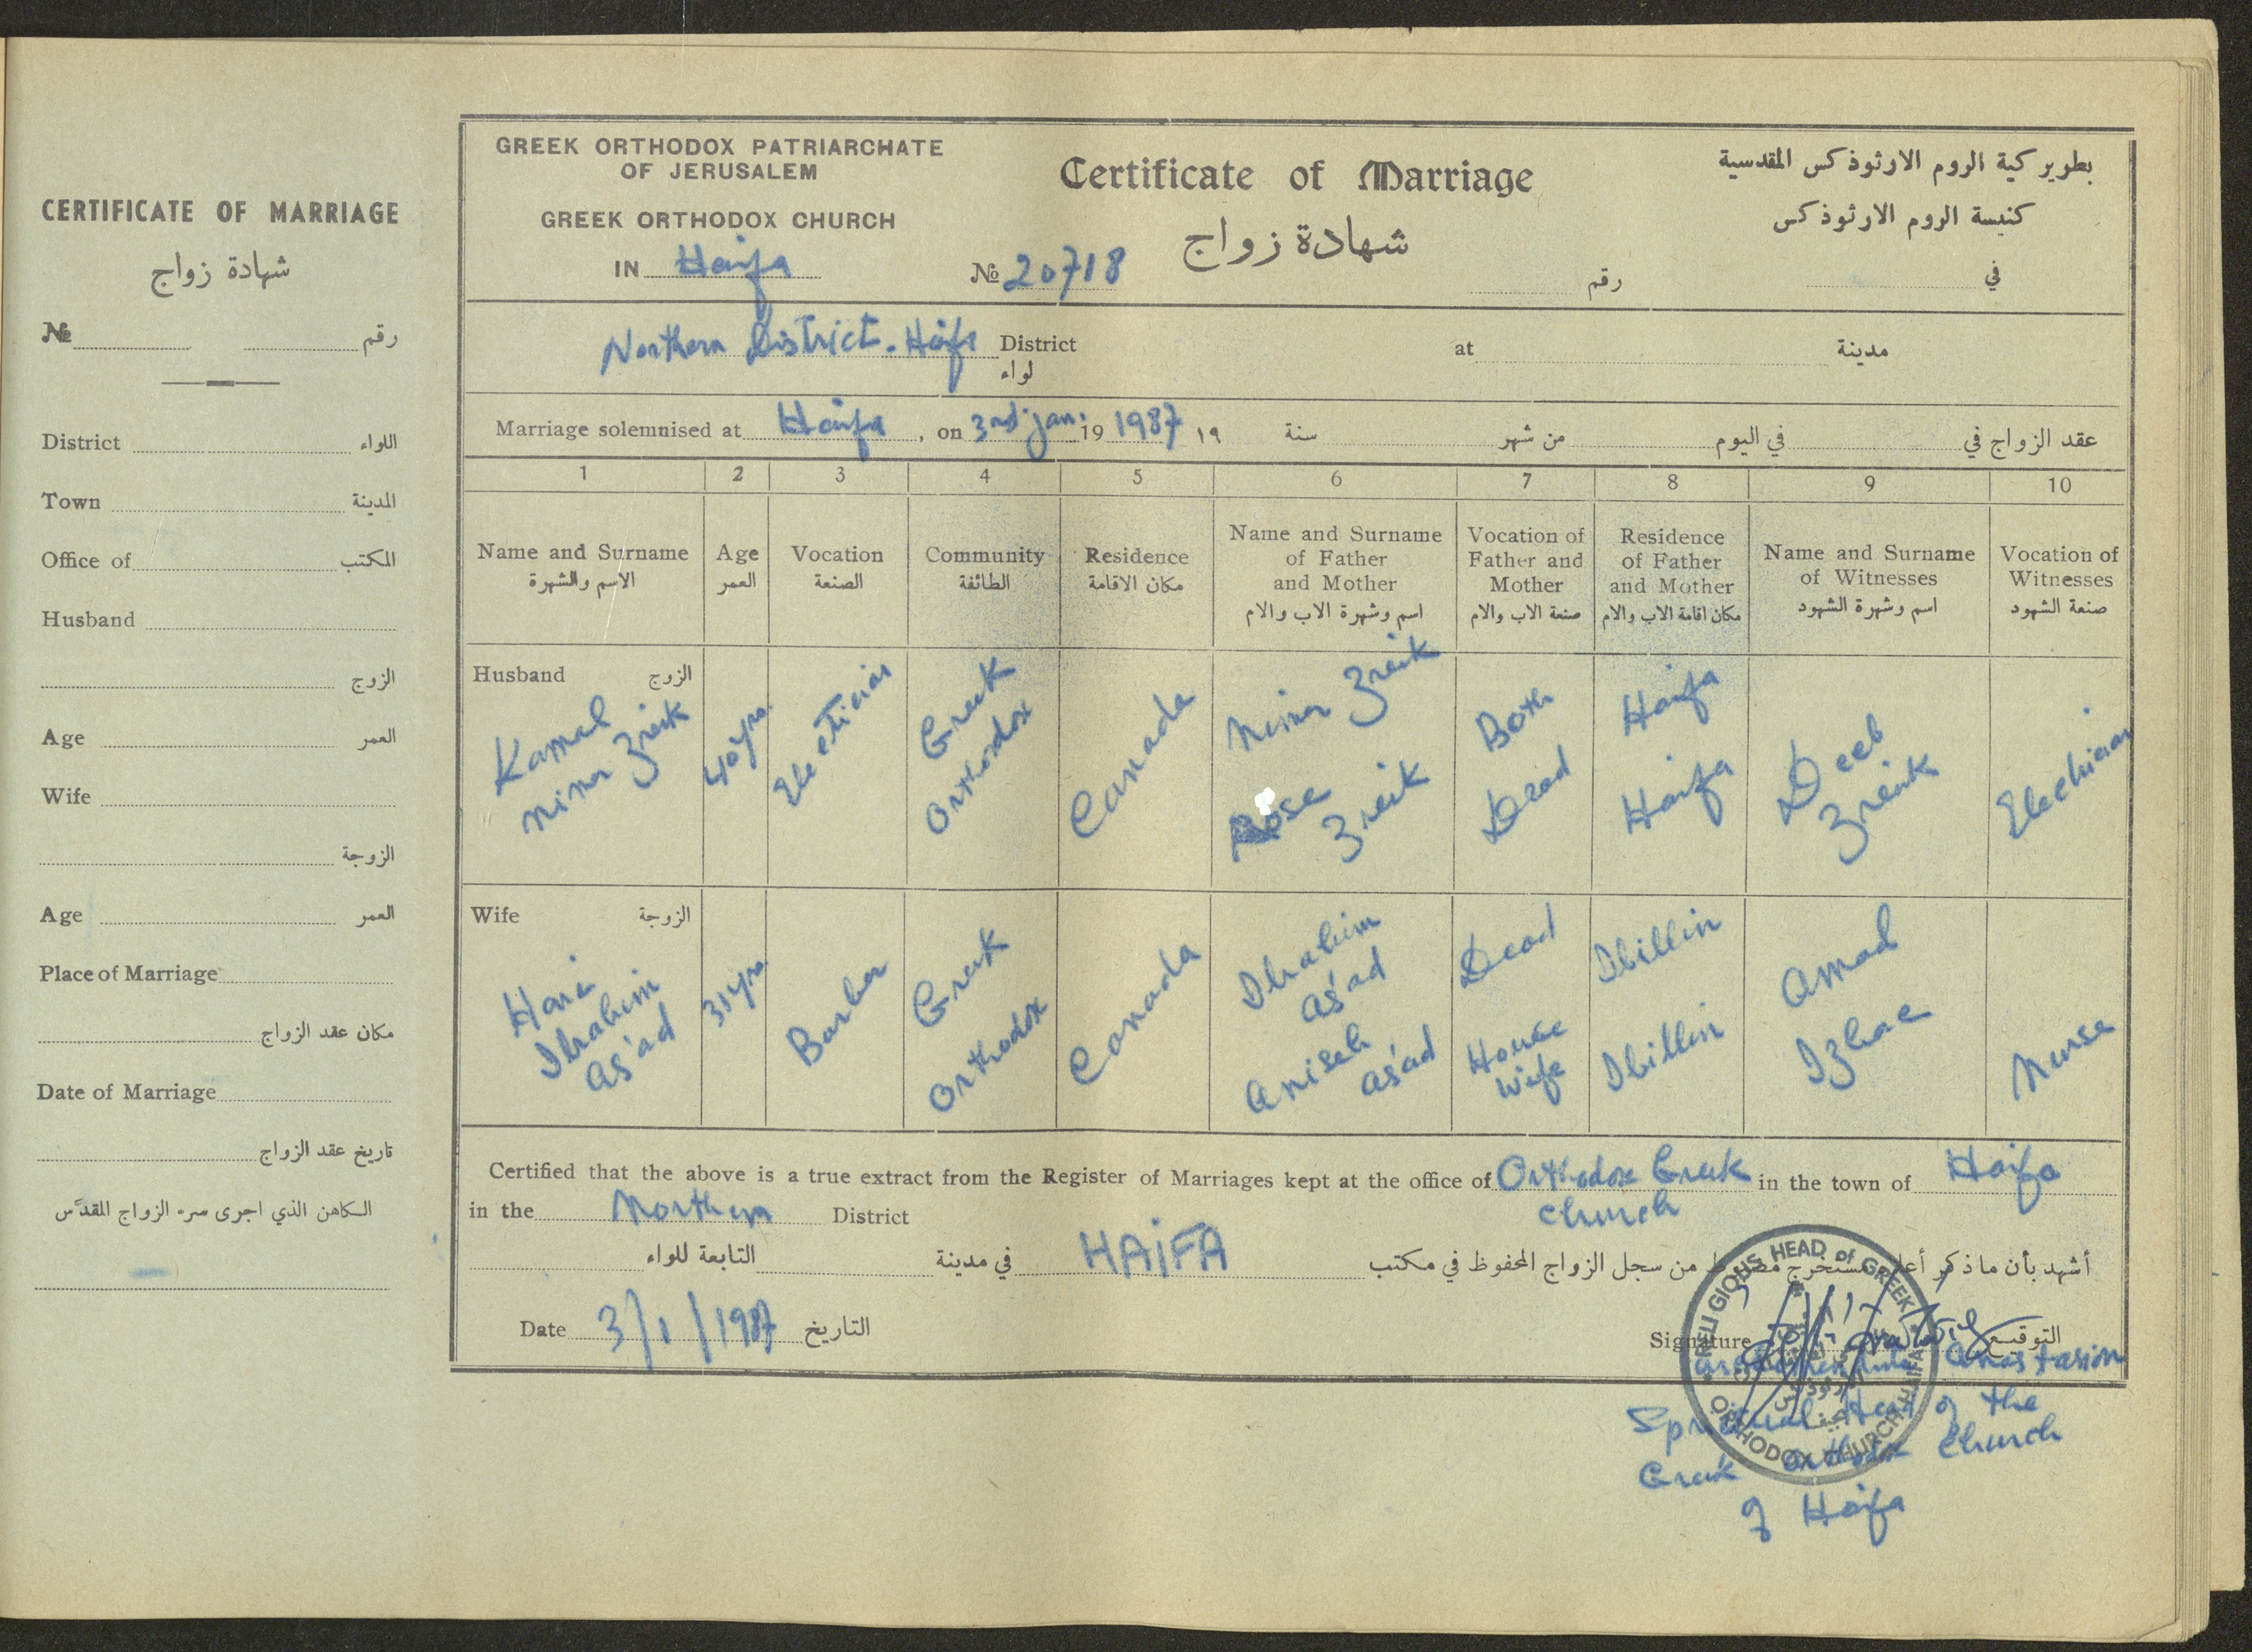 CERTIFICATE OF MARRIAGE
شهادة زواج
№ رقم
District اللواء
Town المدينة
Office of المكتب
Husband
الزوج
Age العمر
Wife
الزوجة
Age العمر
Place of Marriage
مكان عقد الزواج
Date of Marriage
تاريخ عقد الزواج
الكاهن الذي اجرى سر الزواج المقدّس
GREEK ORTHODOX PATRIARCHATE
OF JERUSALEM
GREEK ORTHODOX CHURCH
IN Haifa
Certificate of Marriage
شهادة زواج
№ 20718
رقم
بطوير كية الروم الارثوذكس المقدسية
كنيسة الروم الارثوذكس
في
Northern District - Haifa District at مدينة
لواء
Marriage solemnised at Haifa, on 3rd Jan. 19 1987 ١٩ سنة من شهر في اليوم عقد الزواج في
1 2 3 4 5 6 7 8 9 10
Name and Surname
الاسم والشهرة
Age
العمر
Vocation
الصنعة
Community
الطائفة
Residence
مكان الاقامة
Name and Surname
of Father
and Mother
اسم وشهرة الاب والام
Vocation of
Father and
Mother
صنعة الاب والام
Residence
of Father
and Mother
مكان اقامة الاب والام
Name and Surname
of Witnesses
اسم وشهرة الشهود
Vocation of
Witnesses
صنعة الشهود
Husband الزوج
Kamal
Nimer Zreik
40 yrs.
Electician
Greek
Orthodox
Canada
Nimer Zreik
Rose
Zreik
Both
Dead
Haifa
Haifa
Deeb
Zreik
Elechician
Wife الزوجة
Ibrahim
As'ad
31 yrs.
Barber
Greek
Orthodox
Canada
Ibrahim
As'ad
Aniseh
As'ad
Dead
House
Wife
Ibillin
Ibillin
Amad
Nurse
Certified that the above is a true extract from the Register of Marriages kept at the office of Orthodox Greek in the town of Haifa
Church
in the Northern District
أشهد بأن ما ذكر أعلاه مستخرج مضبوط من سجل الزواج المحفوظ في مكتب HAIFA في مدينة التابعة للواء
Date 3/1/1987 التاريخ
Signature التوقيع
RELIGIOUS HEAD of GREEK
ORTHODOX CHURCH HAIFA
Spritual Head of the
Greek Orthodox Church
of Haifa